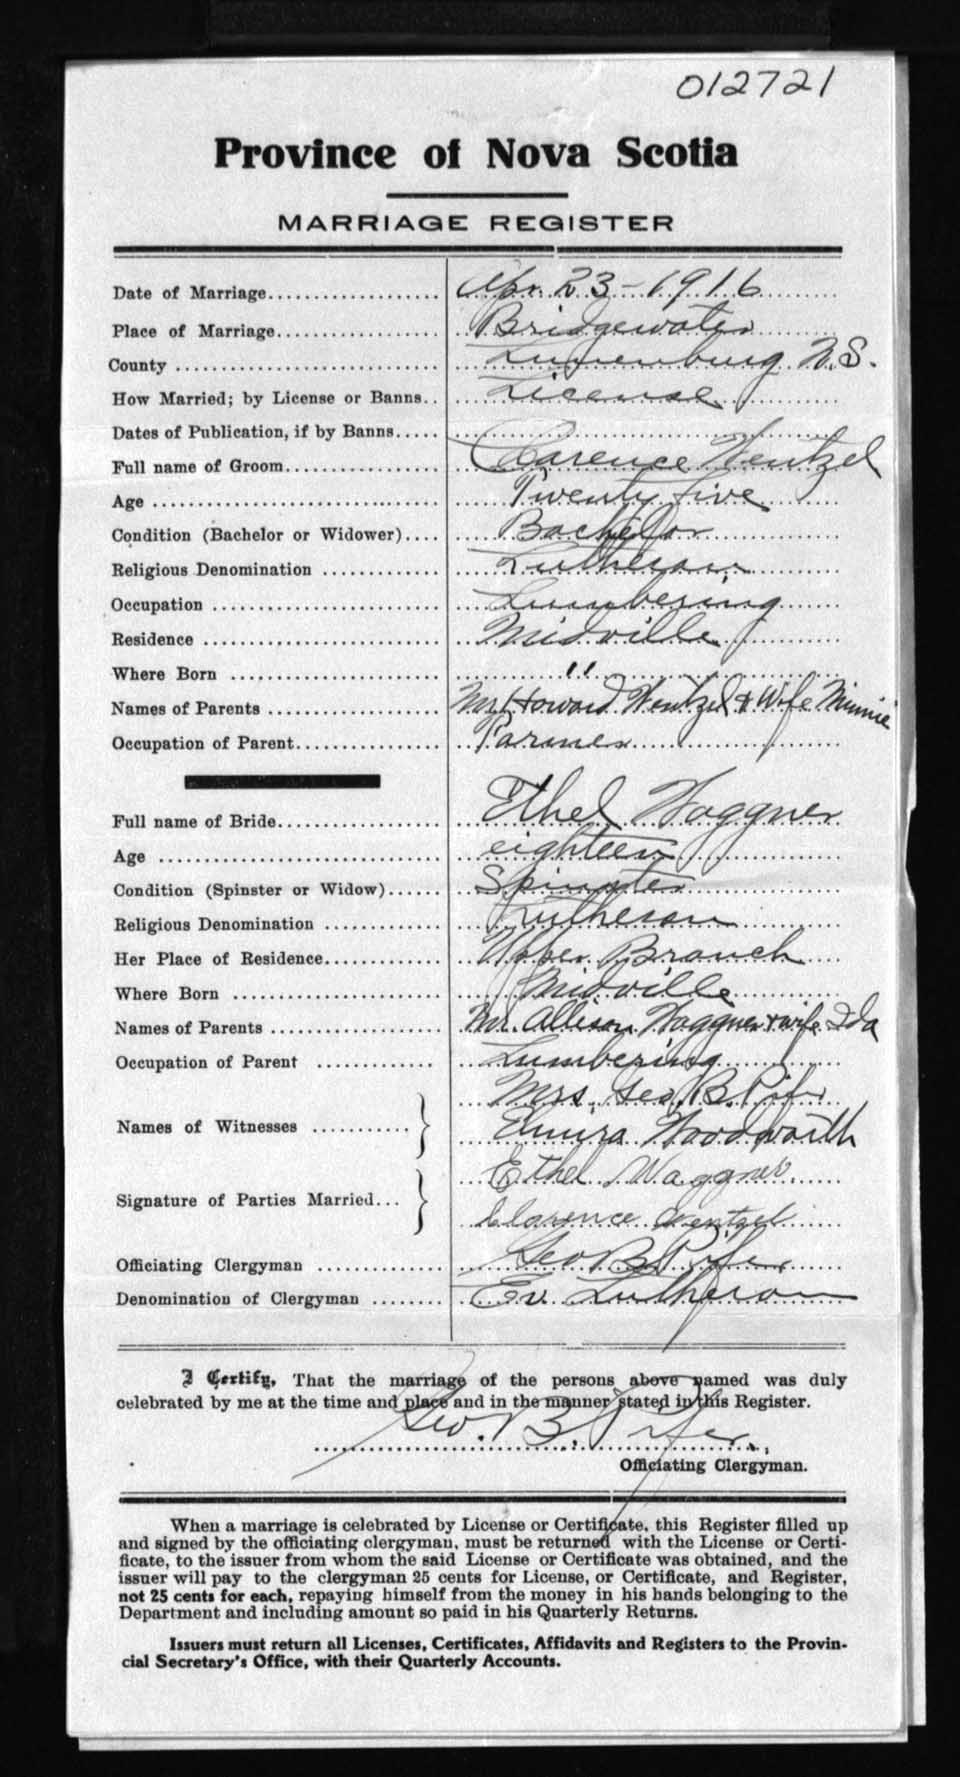 012721
Province of Nova Scotia
MARRIAGE REGISTER
Date of Marriage.................... Apr. 23 - 1916
Place of Marriage................... Bridgewater
County .............................. Lunenburg N.S.
How Married; by License or Banns.. License
Dates of Publication, if by Banns.....
Full name of Groom.................. Clarence Wentzel
Age ................................. Twenty five
Condition (Bachelor or Widower).... Bachelor
Religious Denomination .............. Lutheran
Occupation .......................... Lumbering
Residence ........................... Midville
Where Born .......................... "
Names of Parents .................... Mr Howard Wentzel & Wife Minnie
Occupation of Parent................. Farmer
Full name of Bride................... Ethel Waggner
Age ................................. eighteen
Condition (Spinster or Widow)...... Spinster
Religious Denomination .............. Lutheran
Her Place of Residence.............. Upper Branch
Where Born .......................... Midville
Names of Parents .................... Mr. Allison Waggner & wife Ida
Occupation of Parent ............. Lumbering
Names of Witnesses ........... Mrs. Geo. B. Pifer
Elmira Woodworth
Signature of Parties Married... Ethel Waggner
Clarence Wentzel
Officiating Clergyman ............... Geo B. Pifer
Denomination of Clergyman ........ Ev. Lutheran
I Certify, That the marriage of the persons above named was duly
celebrated by me at the time and place and in the manner stated in this Register.
Geo. B. Pifer
Officiating Clergyman.
When a marriage is celebrated by License or Certificate, this Register filled up
and signed by the officiating clergyman, must be returned with the License or Certi-
ficate, to the issuer from whom the said License or Certificate was obtained, and the
issuer will pay to the clergyman 25 cents for License, or Certificate, and Register,
not 25 cents for each, repaying himself from the money in his hands belonging to the
Department and including amount so paid in his Quarterly Returns.
Issuers must return all Licenses, Certificates, Affidavits and Registers to the Provin-
cial Secretary's Office, with their Quarterly Accounts.